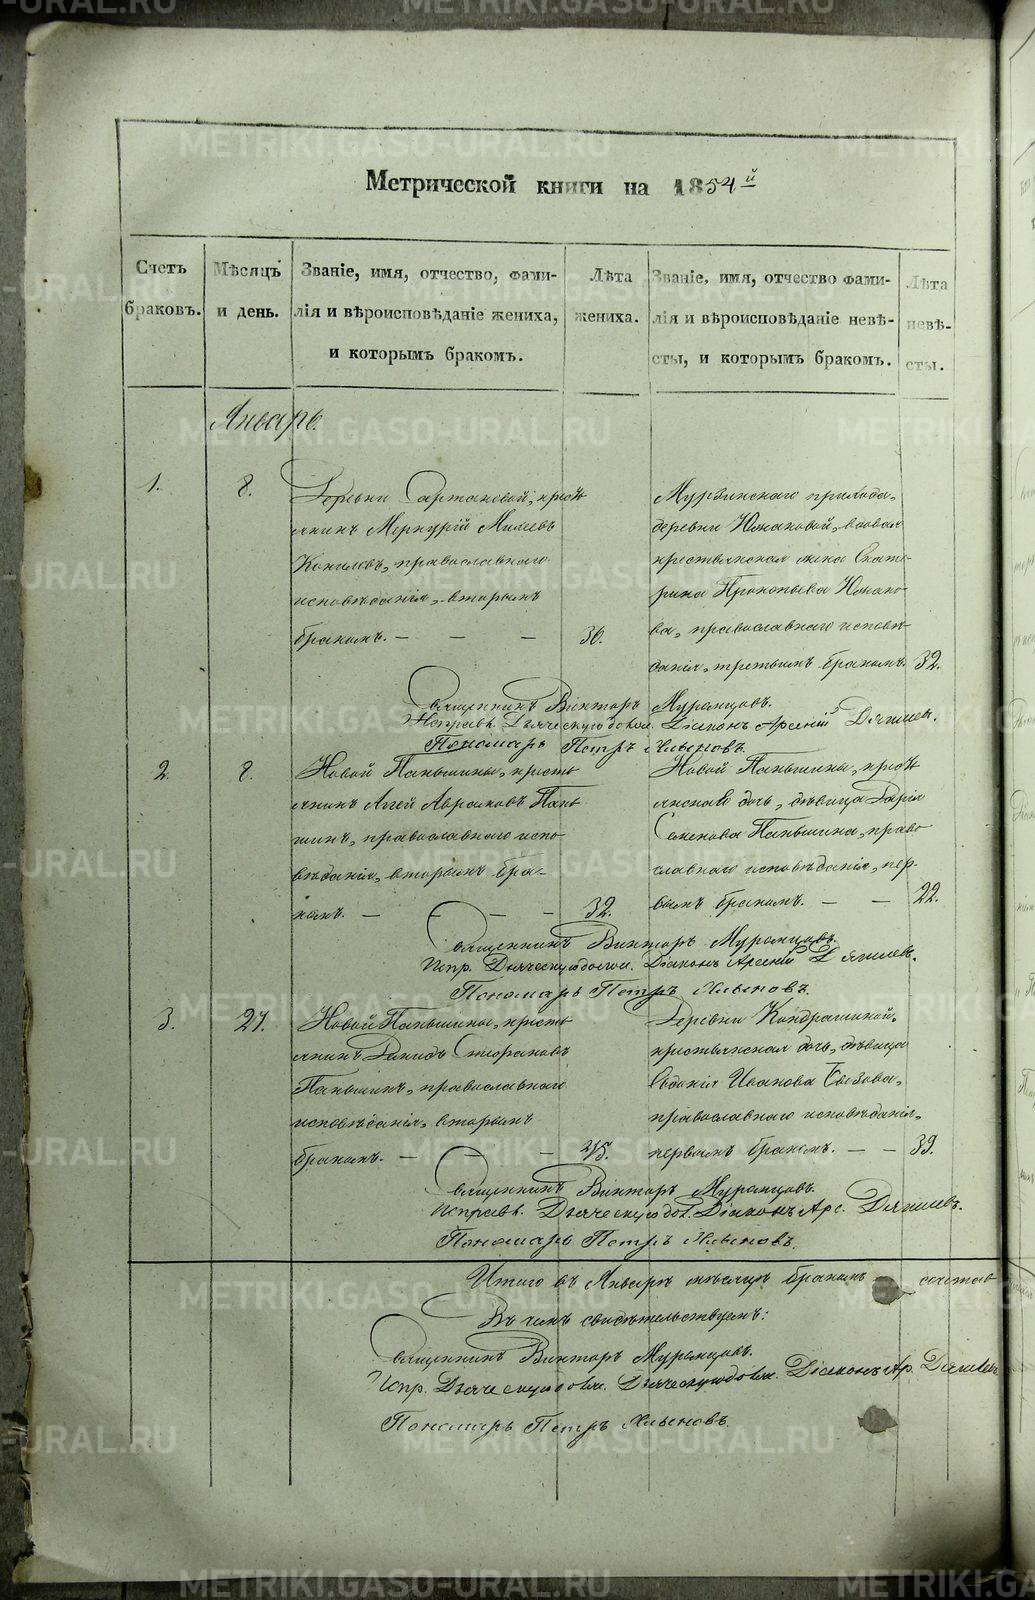 Метрической книги на 1854й
Счетъ браковъ.
Мѣсяцъ и день.
Званіе, имя, отчество, фами-
лія и вѣроисповѣданіе жениха,
и которымъ бракомъ.
Лѣта жениха.
Званіе, имя, отчество фами-
лія и вѣроисповѣданіе невѣ-
сты, и которымъ бракомъ.
Лѣта невѣ-
сты.
Январь.
1.
8.
Деревни Сартаковой, кресть
янинъ Меркурій
православнаго
исповѣданія, вторымъ
бракомъ. — — —
36.
Мурзинскаго прихода,
деревни Южаковой, вдовая
крестьянская жена Екате-
рина Прокопьева Южако-
ва, православнаго исповѣ
данія, третьимъ бракомъ.
32.
Священникъ Викторъ Мурзинцовъ.
Исправл. Дьяческую дол. Діаконъ Арсеній
Пономарь Петръ Хлыновъ.
2.
8.
Новой Паньшины, кресть
янинъ Аггей Авраамовъ Пань
шинъ, православнаго испо
вѣданія, вторымъ бра-
комъ. — — — —
32.
Новой Паньшины, кресть
янская дочь, дѣвица Дарія
Семенова Паньшина, право
славнаго исповѣданія, пер
вымъ бракомъ. — —
22.
Священникъ Викторъ Мурзинцовъ.
Испр. Дьяческую дол. Діаконъ Арсеній
Пономарь Петръ Хлыновъ.
3.
27.
Новой Паньшины, кресть
янинъ Давидъ Стефановъ
Паньшинъ, православнаго
исповѣданія, вторымъ
бракомъ. — — —
45.
Деревни Кондрашиной,
крестьянская дочь, дѣвица
Евдокія Иванова
православнаго исповѣданія,
первымъ бракомъ. — —
39.
Священникъ Викторъ Мурзинцовъ.
Исправл. Дьяческую дол. Діаконъ Арс.
Пономарь Петръ Хлыновъ.
Итого въ Январѣ мѣсяцѣ бракомъ сочетав
Въ чемъ свидѣтельствуемъ:
Священникъ Викторъ Мурзинцовъ.
Испр. Дьяческую долж. Дьяческую долж. Діаконъ Ар.
Пономарь Петръ Хлыновъ
METRIKI.GASO-URAL.RU